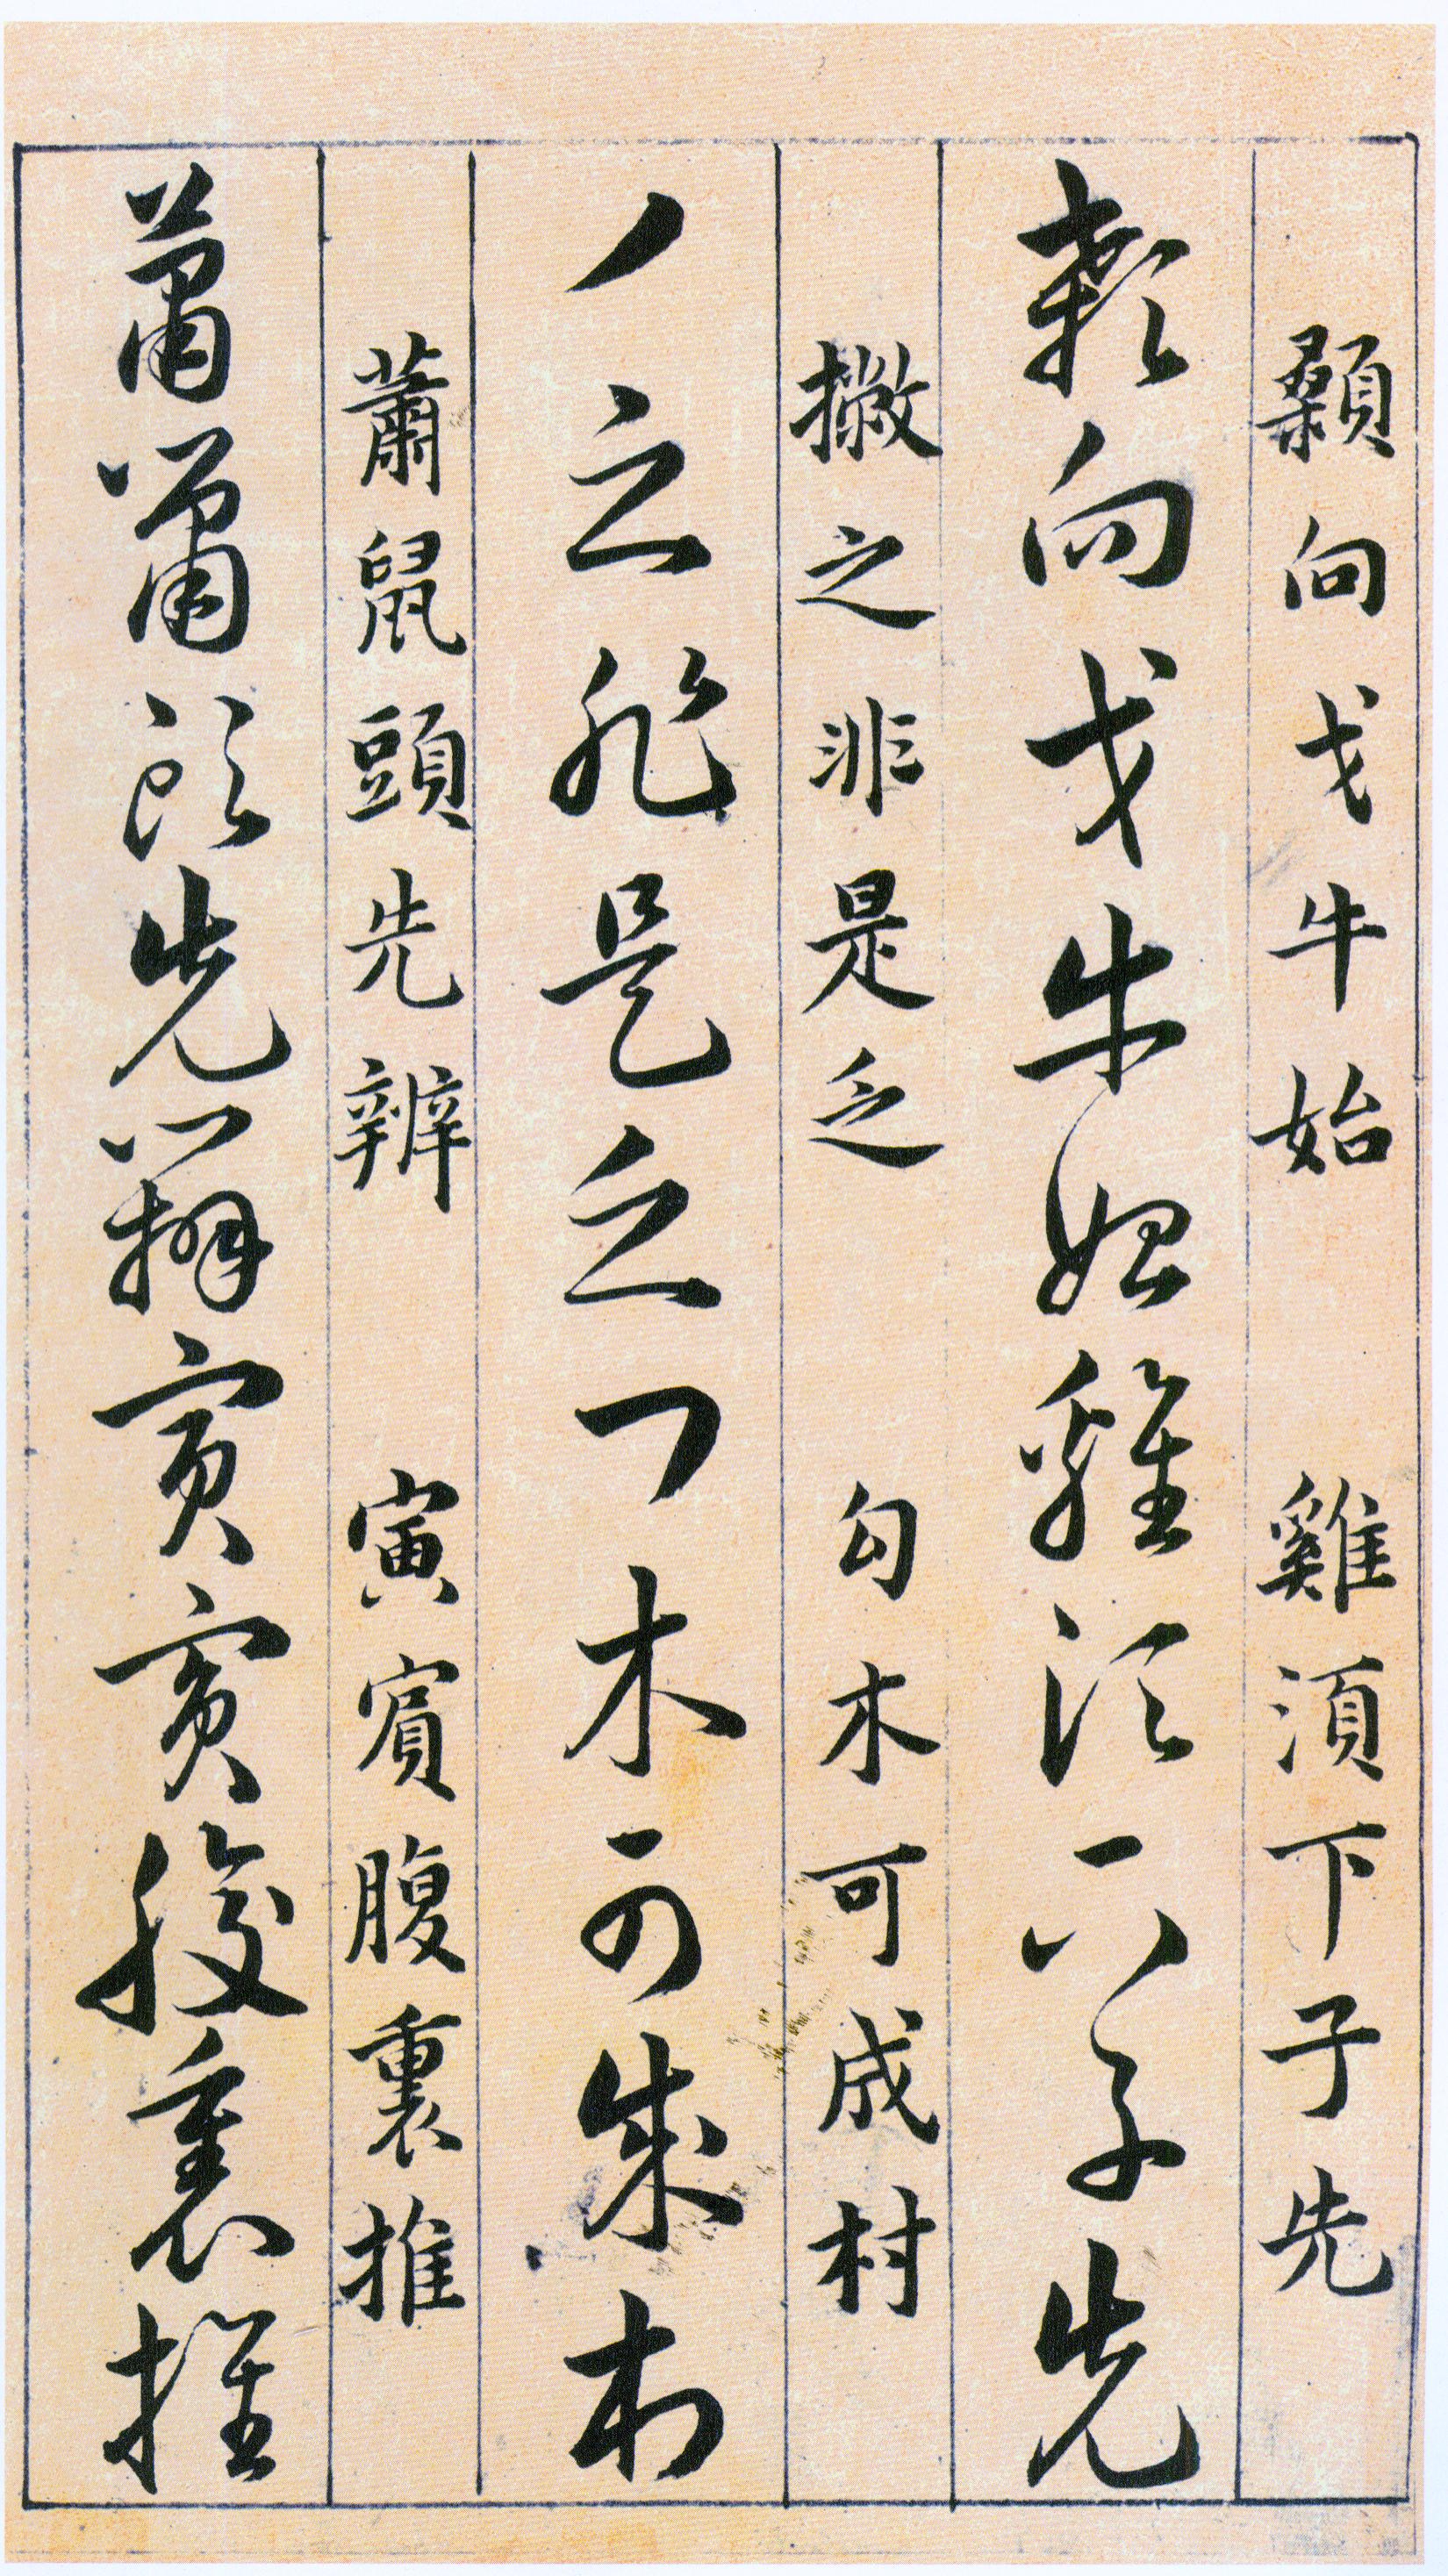 顙向戈牛始 雞須下子先
顙向戈牛始雞須下子先
撇之非是乏 勾木可成村
丿之非是乏𠃌木可成村
蕭鼠頭先辨 寅賓腹裏推
蕭鼠頭先辨寅賓腹裏推